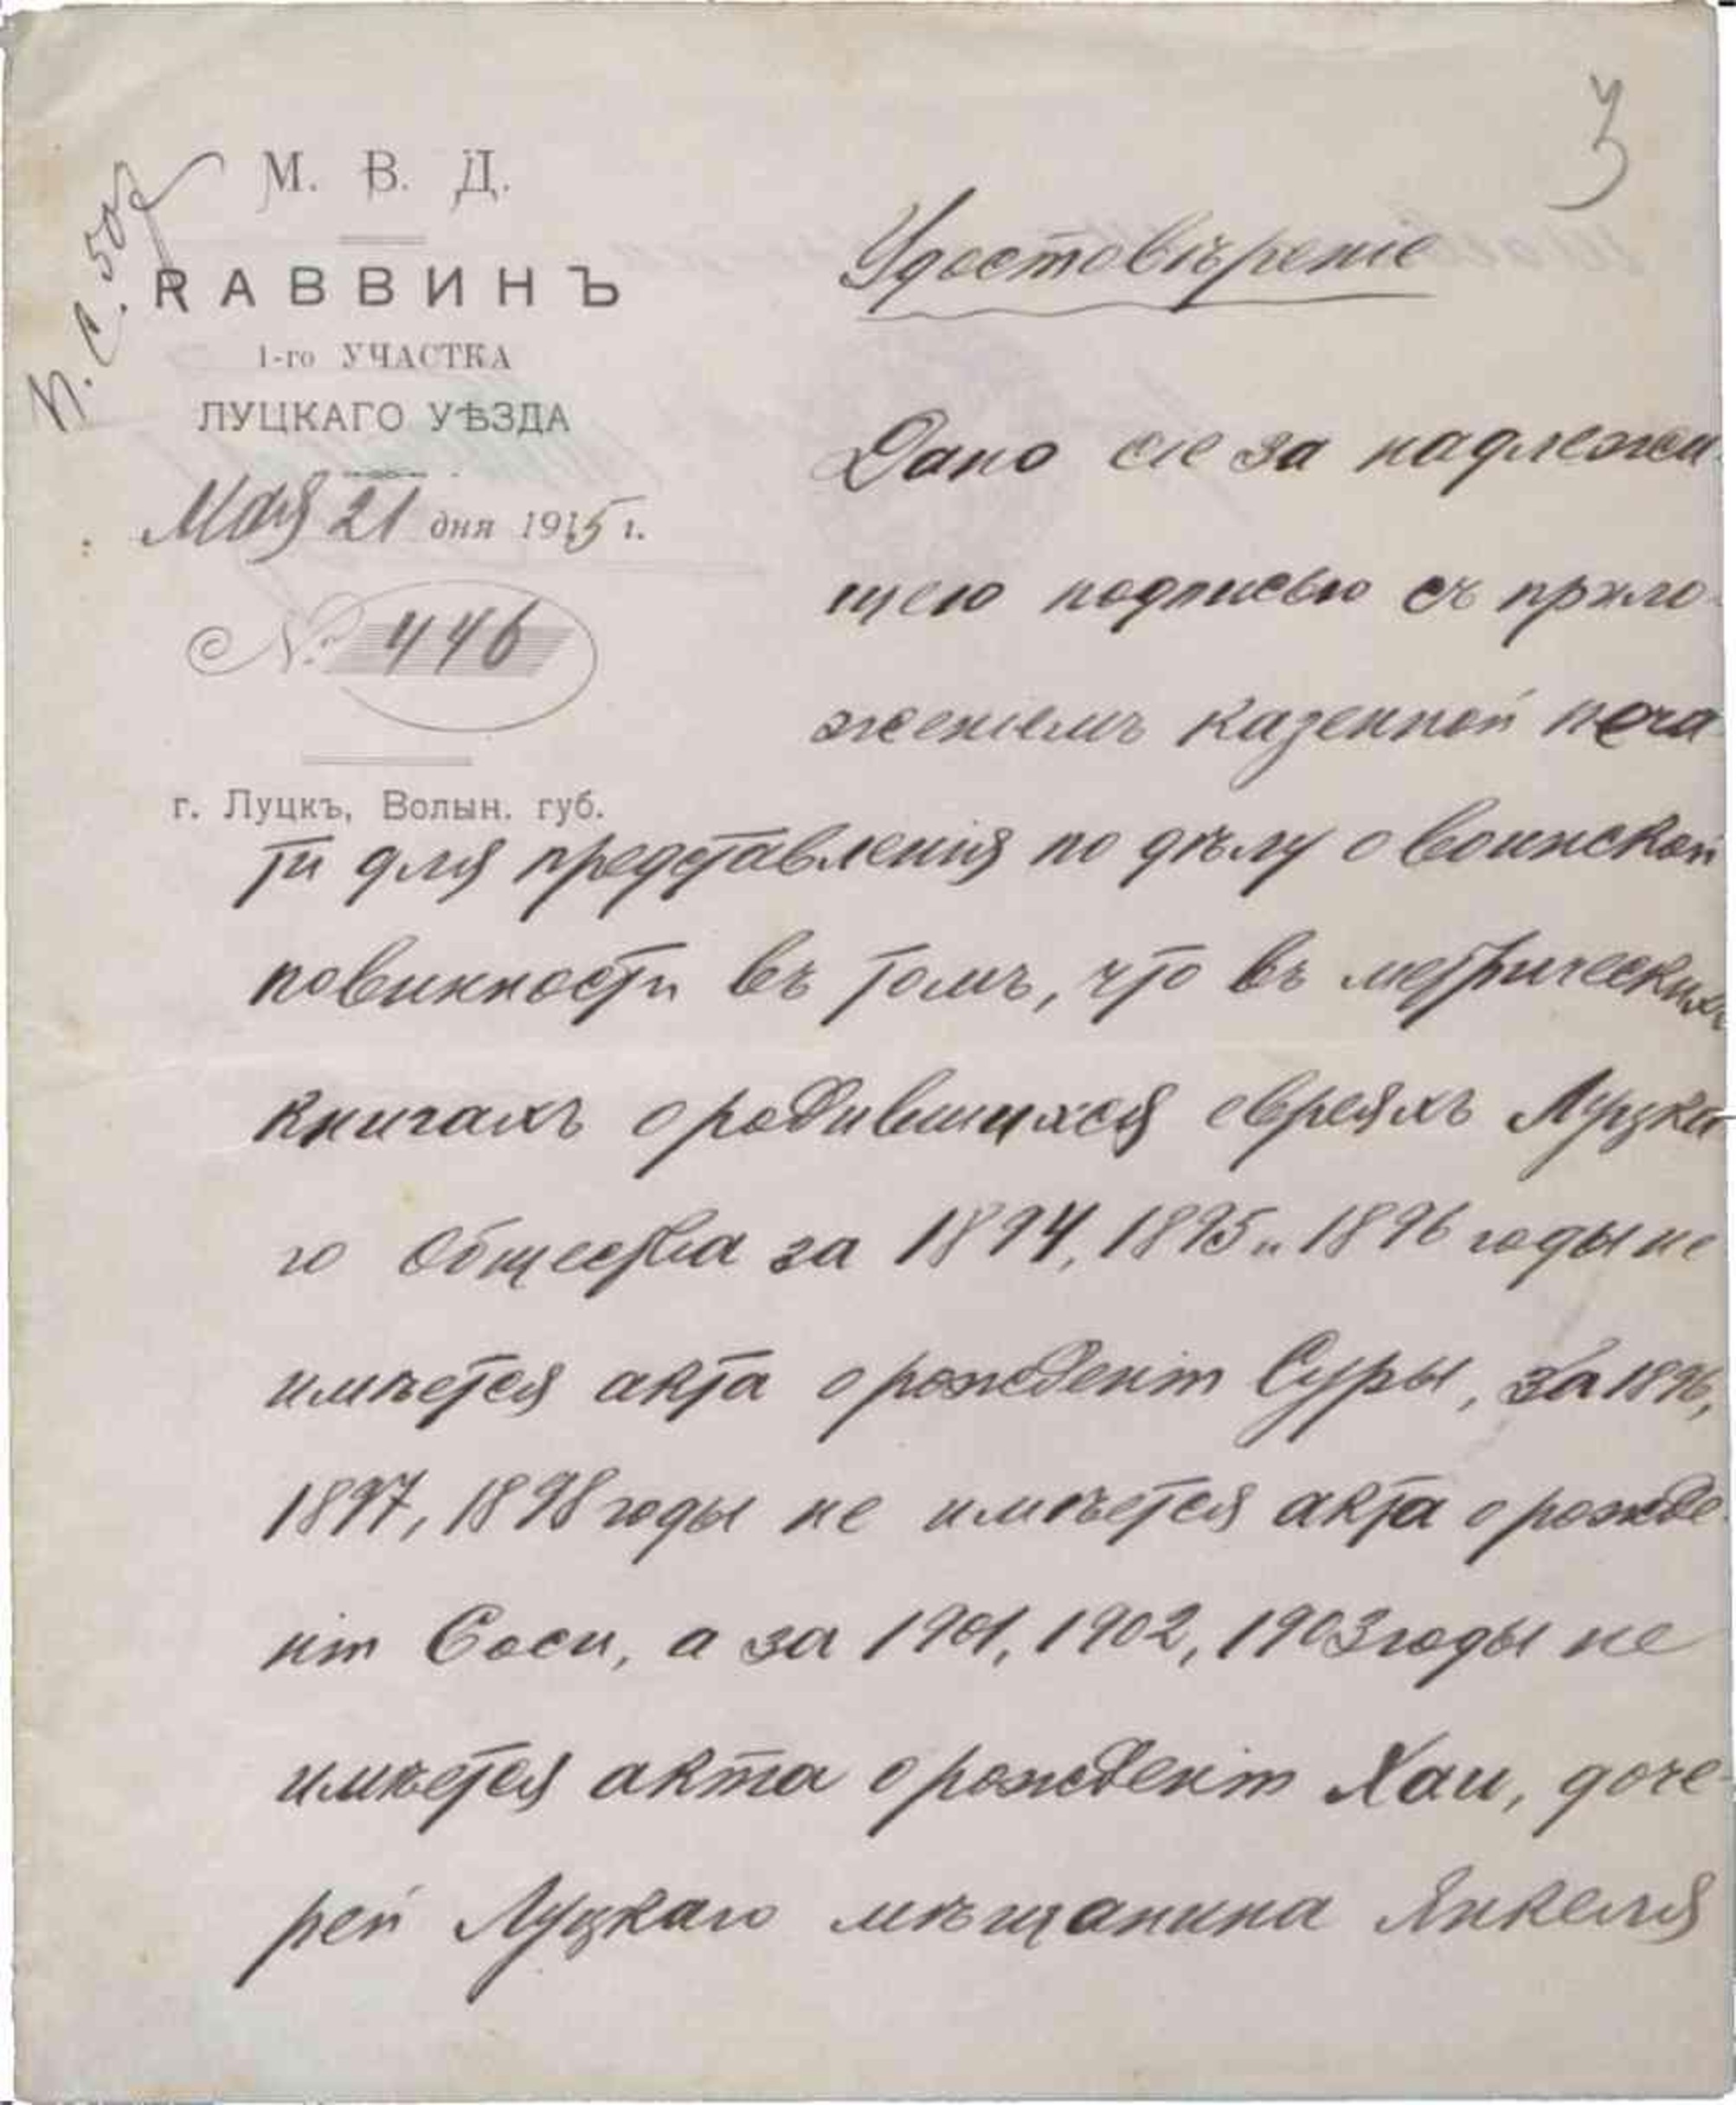 3
М. В. Д.
РАВВИНЪ
1-го УЧАСТКА
ЛУЦКАГО УѢЗДА
Мая 21 дня 1915 г.
№ 446
г. Луцкъ, Волын. губ.
Удостовѣреніе
Дано сіе за надлежа-
щею подписью съ прило-
женіемъ казенной печа-
ти для представленія по дѣлу о воинской
повинности въ томъ, что въ метрическихъ
книгахъ о родившихся евреяхъ Луцка-
го Общества за 1894, 1895 и 1896 годы не
имѣется акта о рожденіи Суры, за 1896,
1897, 1898 годы не имѣется акта о рожде-
ніи Соси, а за 1901, 1902, 1903 годы не
имѣется акта о рожденіи Хаи, доче-
рей Луцкаго мѣщанина Янкеля